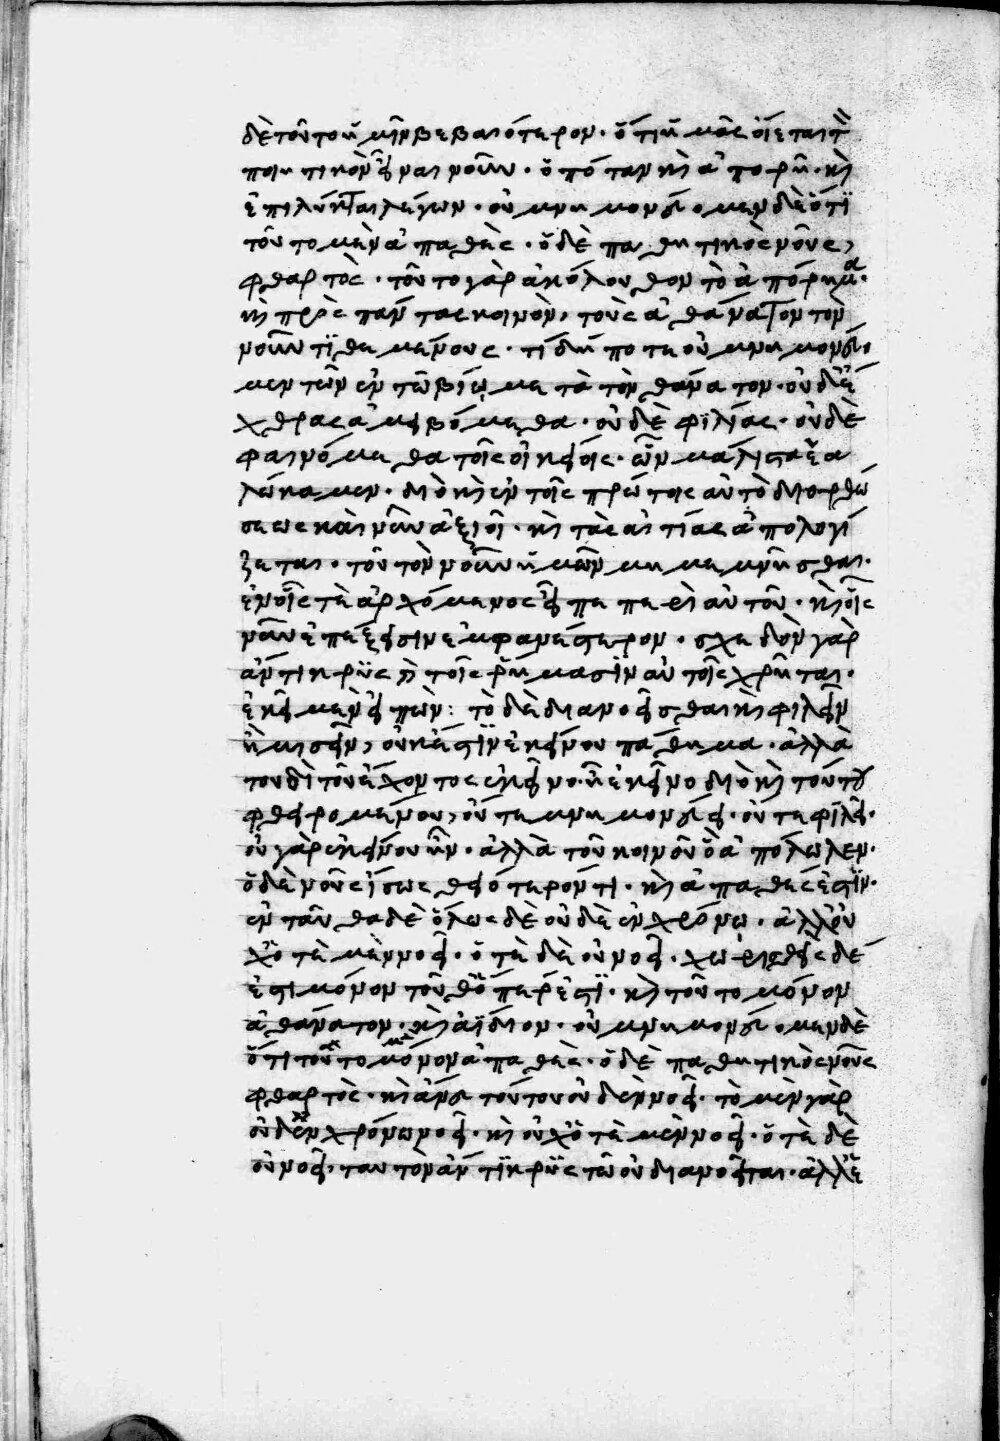 δὲ τοῦτο ἡμῖν βεβαιότερον · ὅτι ἡμᾶς οἴεται τὸν
ποιητικὸν εἶναι νοῦν · ὁπόταν καὶ ἀπορῆ · καὶ
ἐπιλύηται λέγων · οὐ μνημονεύομεν δὲ ὅτι
τοῦτο μὲν ἀπαθὲς · ὁ δὲ παθητικὸς νοῦς,
φθαρτός · τοῦτο γὰρ ἀκόλουθον τὸ ἀπόρημα ·
καὶ πρὸς πάντας κοινὸν, τοὺς ἀθάνατον τὸν
νοῦν τιθεμένους · τί δήποτε οὐ μνημονεύο
μεν τῶν ἐν τῶ βίω μετὰ τὸν θάνατον · οὐδ' ἔ
χθρας ἀμειβόμεθα · οὐδὲ φιλίας · οὐδὲ
φαινόμεθα τοῖς οἰκείοις · ὧν μάλιστα ἑα
λώκαμεν · διὸ καὶ ἐν τοῖς πρώτοις αὐτὸ διορθώ
σεως καὶ νῦν ἀξιοῖ · καὶ τὰς αἰτίας ἀπολογί
ζεται · τοῦ τὸν νοῦν ἡμῶν μὴ μεμνῆσθαι ·
ἐν οἷς τε ἀρχόμενος εἶπε περὶ αὐτοῦ · καὶ οἷς
νῦν ἐπέξεισιν ἐμφανέστερον · σχεδὸν γὰρ
ἀντικρὺς τοῖς ῥήμασιν αὐτοῖς χρῆται ·
ἐκεῖ μὲν εἰπὼν : τὸ δὲ διανοεῖσθαι καὶ φιλεῖν
ἢ μισεῖν, οὐκ ἔστιν ἐκείνου πάθημα · ἀλλὰ
τουδὶ τοῦ ἔχοντος ἐκεῖνο · ἧ ἐκεῖνο διὸ καὶ τούτου
φθειρομένου, οὔτε μνημονεύει · οὔτε φιλεῖ ·
οὐ γὰρ ἐκείνου ἦν · ἀλλὰ τοῦ κοινοῦ ὃ ἀπόλωλεν ·
ὁ δὲ νοῦς ἴσως θειότερον τι · καὶ ἀπαθές ἐστιν ·
ἐνταῦθα δὲ ὅλως δὲ οὐδὲ ἐν χρόνω · ἀλλ' οὐ
χ' ὁτὲ μὲν νοεῖ · ὁτὲ δὲ οὐ νοεῖ · χωρισθεὶς δέ
ἐστι μόνον τοῦθ' ὅπερ ἐστὶ · καὶ τοῦτο μόνον
ἀθάνατον · καὶ ἀΐδιον · οὐ μνημονεύομεν δὲ
ὅτι τοῦτο μόνον ἀπαθὲς · ὁ δὲ παθητικὸς νοῦς
φθαρτὸς · καὶ ἄνευ τούτου οὐδὲν νοεῖ · τὸ μὲν γὰρ
οὐδ' ἐν χρόνω νοεῖ · καὶ οὐχ' ὁτὲ μὲν νοεῖ · ὁτὲ δὲ
οὐ νοεῖ · ταυτὸν ἀντικρὺς τῶ οὐ διανοεῖται · ἀλλ' ἔ